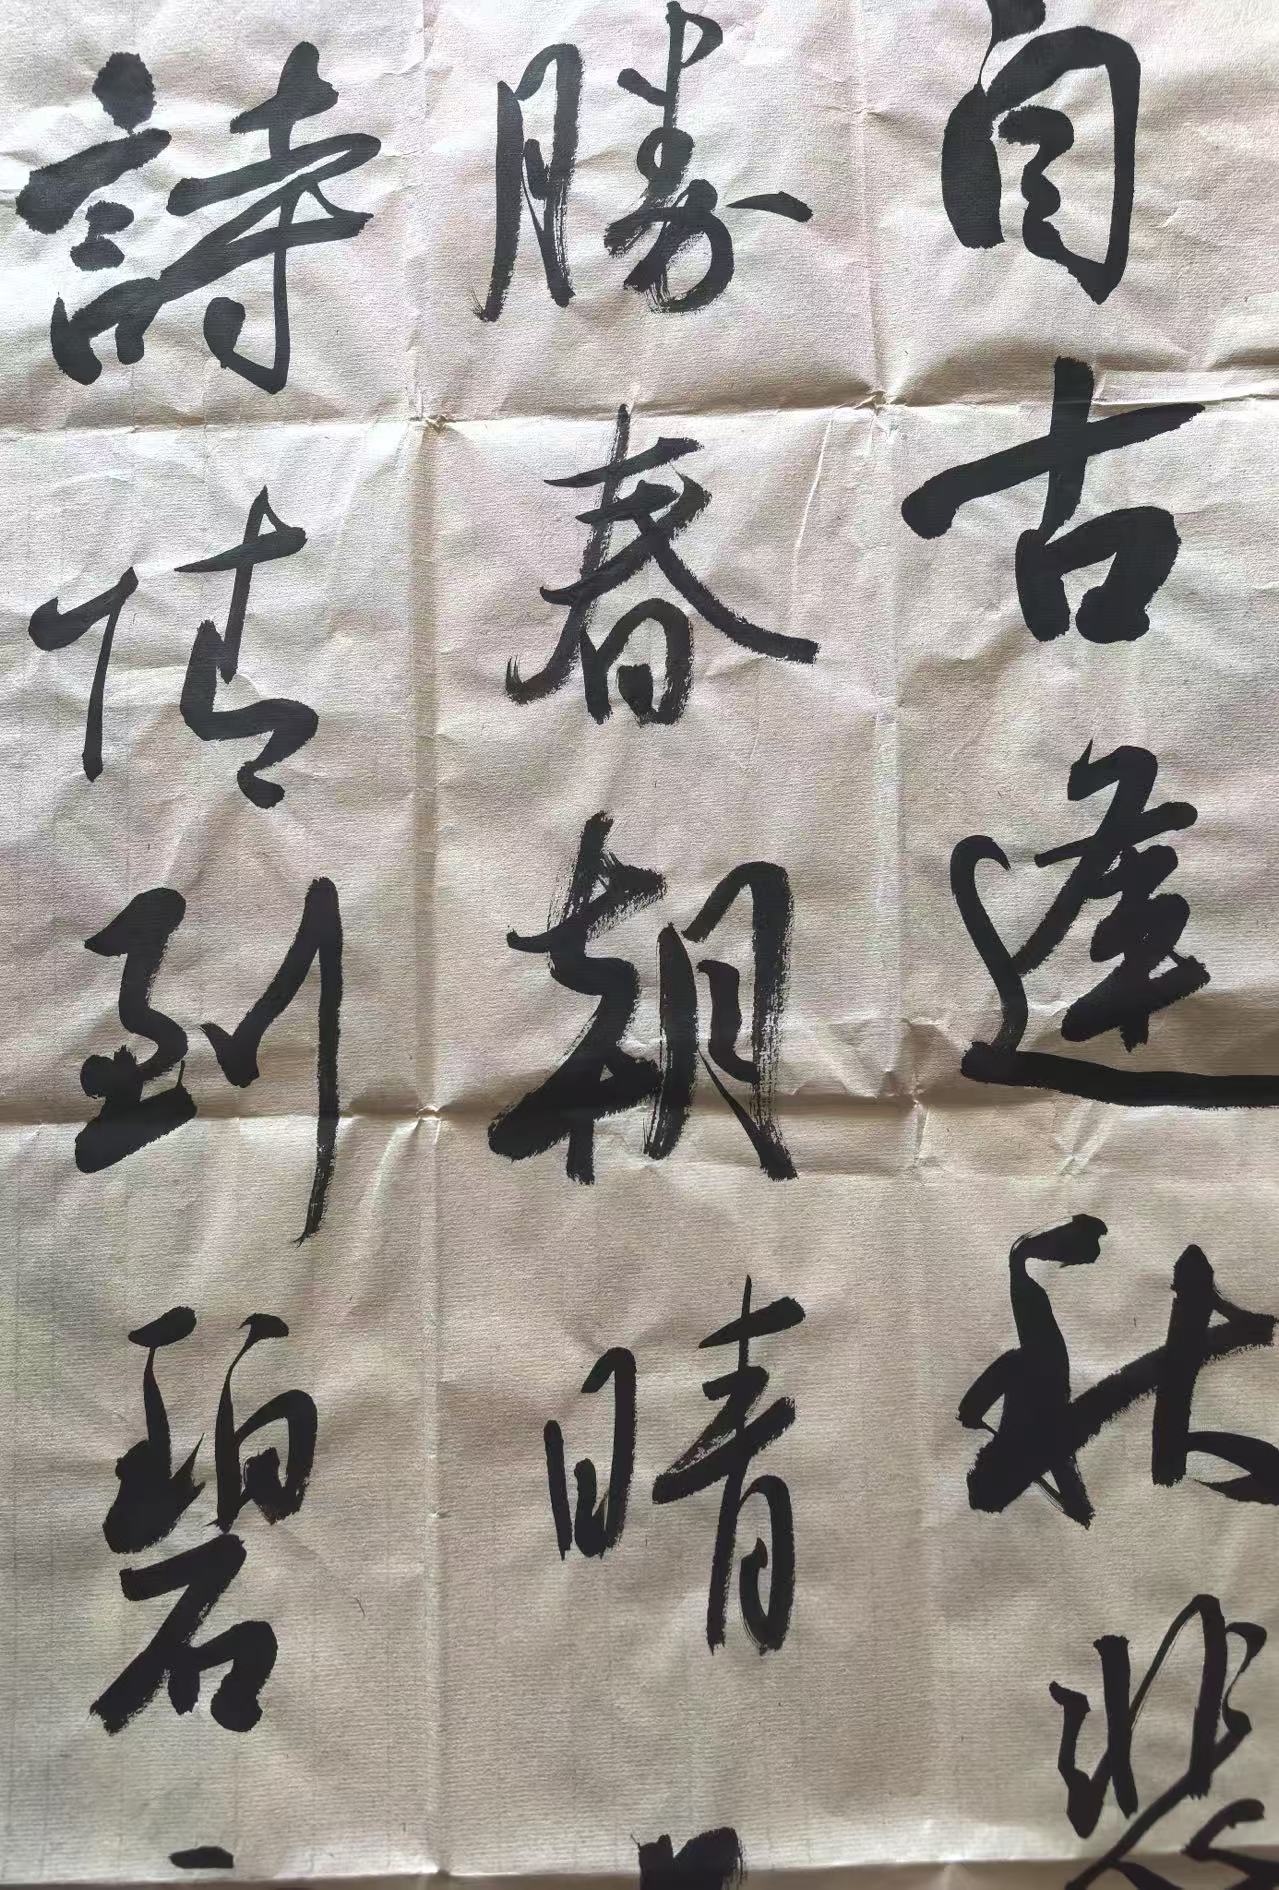 自古逢秋悲
勝春朝晴
詩情到碧